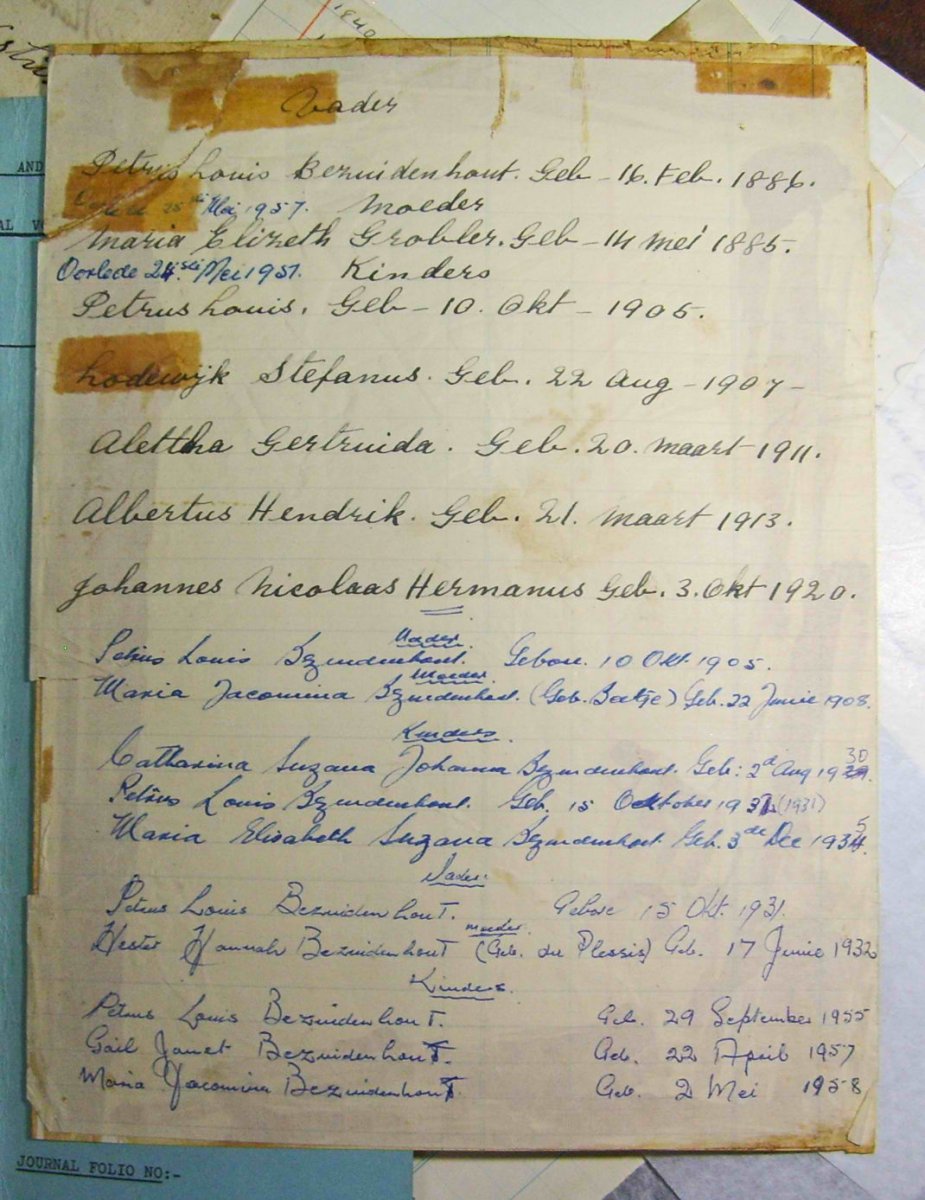 1840
AND
Vader
Petrus Louis Bezuidenhout. Geb - 16. Feb. 1886.
Mei 1957. Moeder
Maria Elizeth Grobler. Geb - 14 mei 1885.
Oorlede Mei 1957. Kinders
Petrus Louis. Geb - 10. Okt - 1905.
Lodewijk Stefanus. Geb. 22 Aug - 1907 -
Alettha Gertruida. Geb. 20. maart 1911.
Albertus Hendrik. Geb. 21. maart 1913.
Johannes Nicolaas Hermanus Geb. 3. Okt 1920.
Vader.
Petrus Louis Bezuidenhout. Gebore. 10 Okt. 1905.
Moeder.
Maria Jacomina Bezuidenhout. (Geb. ) Geb. 22 Junie 1908.
Kinders.
Catharina Suzana Johanna Bezuidenhout. Geb: 2d Aug 1930.
Petrus Louis Bezuidenhout. Geb. 15 Oktober 1932 (1931)
Maria Elisabeth Suzana Bezuidenhout. Geb. 3de Dec 1935.
Vader.
Petrus Louis Bezuidenhout. Gebore 15 Okt. 1931.
moeder.
Hester Hannah Bezuidenhout (Geb. du Plessis) Geb. 17 Junie 1932
Kinders.
Petrus Louis Bezuidenhout. Geb. 29 September 1955
Gail Janet Bezuidenhout. Geb. 22 April 1957
Maria Jacomina Bezuidenhout Geb. 2 Mei 1958
JOURNAL FOLIO NO:-